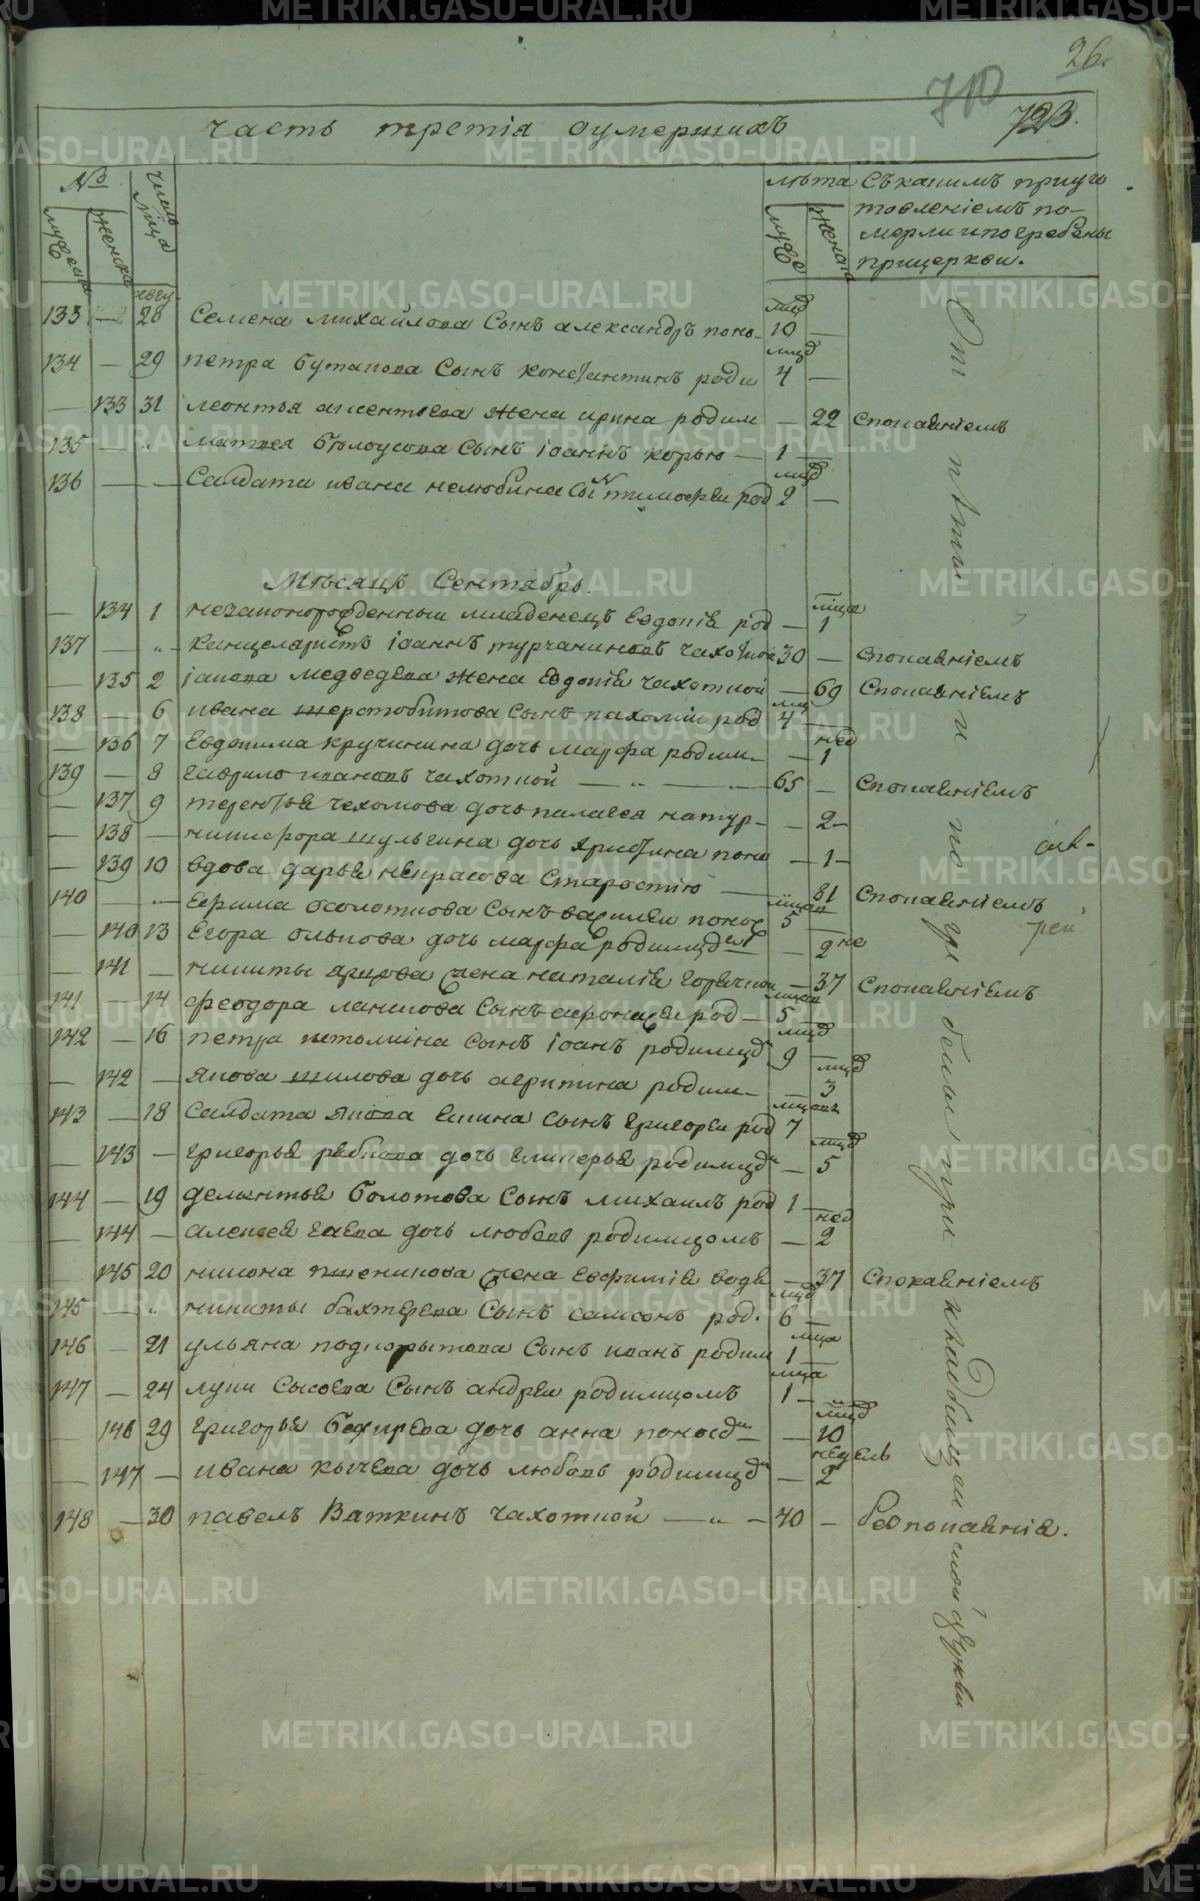 26.
710
723.
часть третія оумершихъ
№
мужеска
женска
число
мѣсяца
лѣта
муже
женска
Съ какимъ приуго
товленіемъ по-
мерли и погребены
при церкви.
авгу
133 — 28 Семена михайлова Сынъ александръ поно- мцд 10 —
134 — 29 петра бутакова Сынъ констянтинъ роди мцд 4 —
— 133 31 леонтья аксентьева жена ирина родим — 22 Спокаяніемъ
135 — „ матвея белоусова Сынъ іоаннъ корью — 1 —
136 — — Салдата ивана нелюбина Сынъ тимофеи род мцд 2 —
Мѣсяцъ Сентябрь.
— 134 1 незаконорожденныи младенецъ Евдокія род — мца 1
137 — „ Канцеляристъ іоаннъ турчаниновъ чахоткои 30 — Спокаяніемъ
— 135 2 іакова медведева жена Евдокія чахоткой — 69 Спокаяніемъ
138 — 6 ивана шерстобитова Сынъ пахомии род мц 4 —
— 136 7 Евдокима кручинина дочь марфа родим — нед 1
139 — 8 гаврило ивановъ чахоткой — „ — 65 — Спокаяніемъ
— 137 9 терентья чехомова дочь палагея натур- — 2 —
— 138 — никифора шульгина дочь християна поно — 1 —
— 139 10 вдова дарья некрасова Старостію — 81 Спокаяніемъ
140 — — Ефима осолоткова Сынъ василеи понос мцап 5 —
— 140 13 Егора олькова дочь марфа родимцемъ — 2 не
— 141 — никиты жена наталія горячкои — 37 Спокаяніемъ
141 — 14 феодора Сынъ афонасеи род — мцап 5 —
142 — 16 петра Сынъ іоанъ родимцд мцд 9 —
— 142 — якова шилова дочь агрипина родим — мцд 3
143 — 18 Салдата якова Сынъ григореи род мцовъ 7
— 143 — григорья рябкова дочь гликерья родимцд — мцд 5
144 — 19 дементья болотова Сынъ михаилъ род 1 —
— 144 — алексея гаева дочь любовь родимцомъ — нед 2
— 145 20 никона пшеникова жена Евфимія водя — 37 Спокаяніемъ
145 — „ никиты бахтерева Сынъ самсонъ род. мцд 6 —
146 — 21 ульяна подкорытова Сынъ иванъ родим мца 1 —
147 — 24 луки Сысоева Сынъ андреи родимцомъ мца 1 —
— 146 29 григорья бахирева дочь анна поносд — мцд 10
— 147 — ивана кычева дочь любовь родимцд — недель 2
148 — 30 павелъ Вяткинъ чахоткой — „ — 40 — безпокаянія.
От петы и погребены при кладбищенской церкви